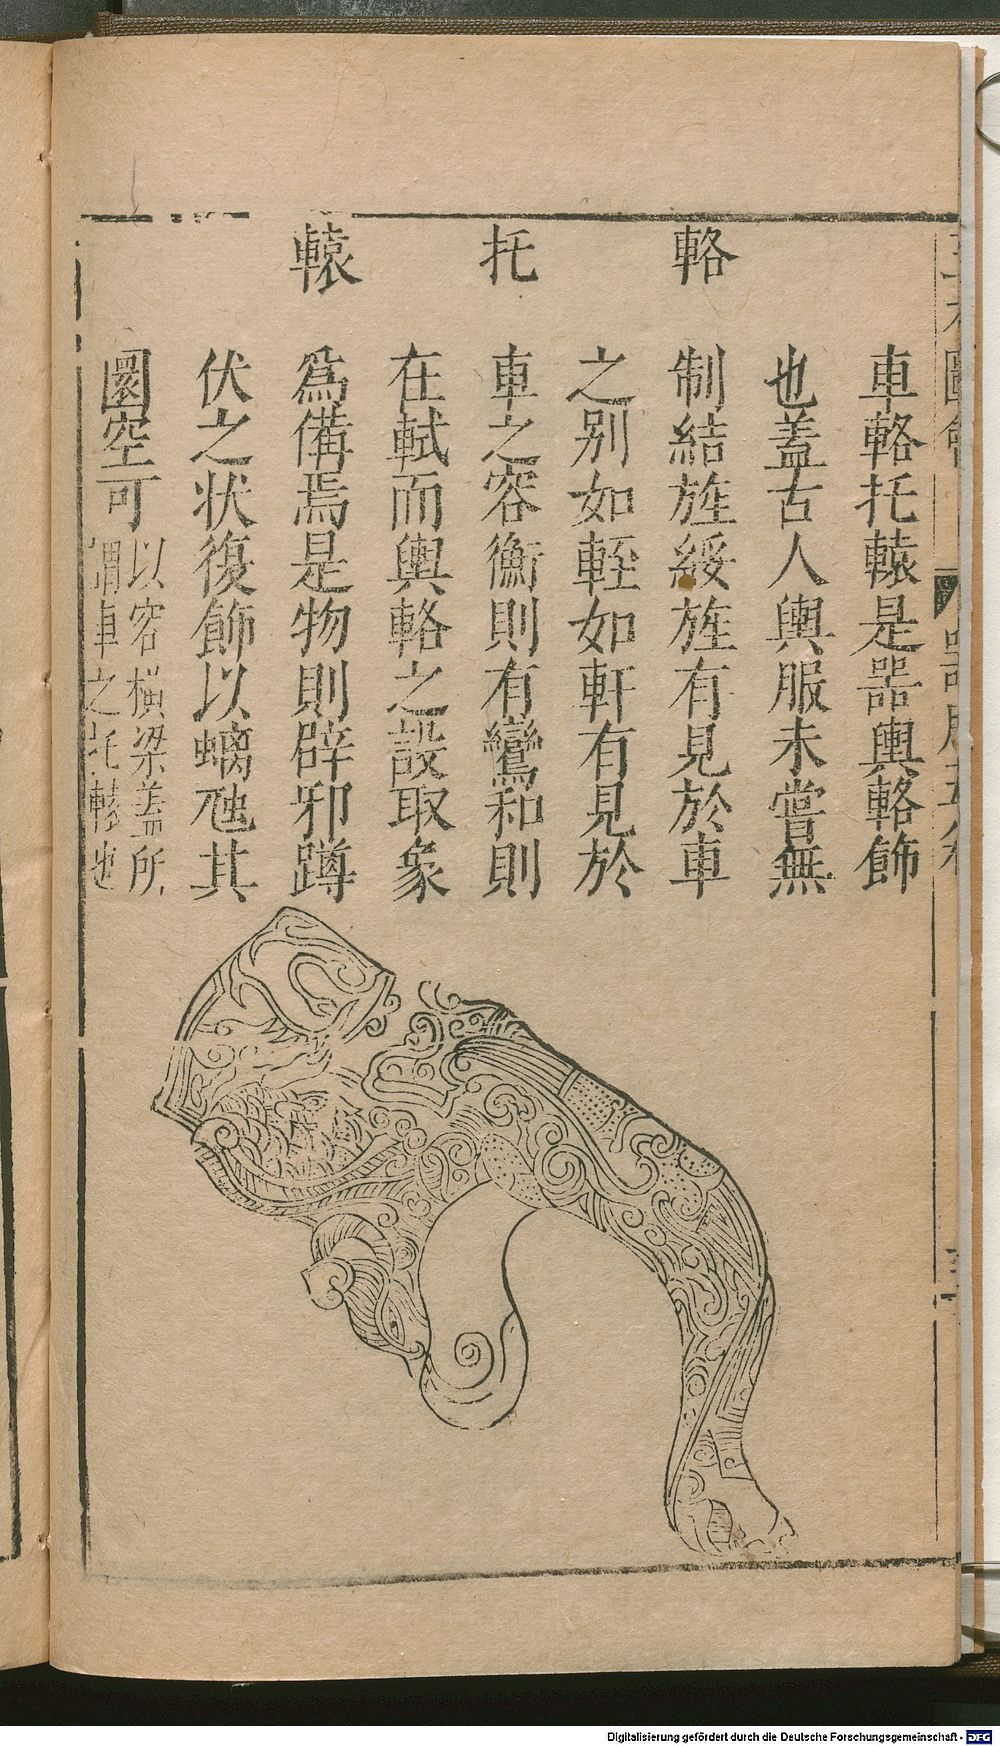 輅
托
轅
車輅托轅是器輿輅飾
也蓋古人輿服未嘗無
制結旌綏旌有見於車
之别如輊如軒有見於
車之容衡則有鸞和則
在軾而輿輅之設取象
為備焉是物則辟邪蹲
伏之状復飾以螭虺其
圜空可
以容横梁蓋所
謂車之托轅也
Digitalisierung gefördert durch die Deutsche Forschungsgemeinschaft - DFG